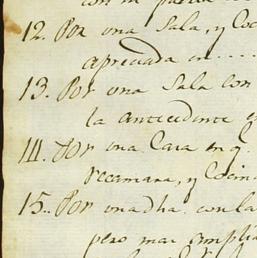 con su puerta
12. Por una Sala, y Coc
apreciada en....
13. Por una Sala con
la antecedente e
14. Por una Casa en q.
recamara, y Cocina
15.. Por una dha. con la
pero mas amplia